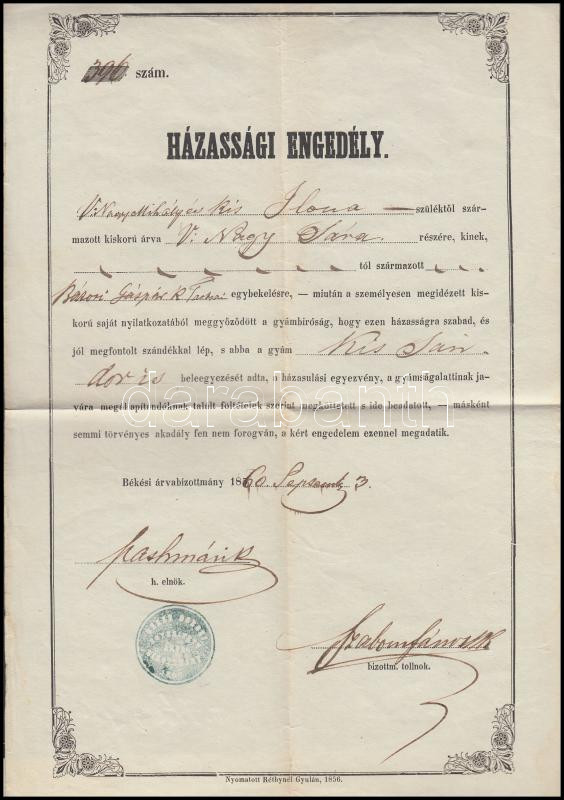 396 szám.
HÁZASSÁGI ENGEDÉLY.
V: Nagy Mihály és Kis Ilona — szüléktől szár-
mazott kiskorú árva V: Nagy Sára részére, kinek,
tól származott
Gáspár egybekelésre, — miután a személyesen megidézett kis-
korú saját nyilatkozatából meggyőződött a gyámbíróság, hogy ezen házasságra szabad, és
jól megfontolt szándékkal lép, s abba a gyám Kis Sán-
dor is beleegyezését adta, a házasulási egyezvény, a gyámságalattinak ja-
vára megállapítandóknak talált föltételek szerint megköttetett s ide beadatott, — másként
semmi törvényes akadály fen nem forogván, a kért engedelem ezennel megadatik.
Békési árvabizottmány 1860. Septemb 3.
h. elnök.
bizottm. tollnok.
Nyomatott Réthynél Gyulán, 1856.
darabanth.com